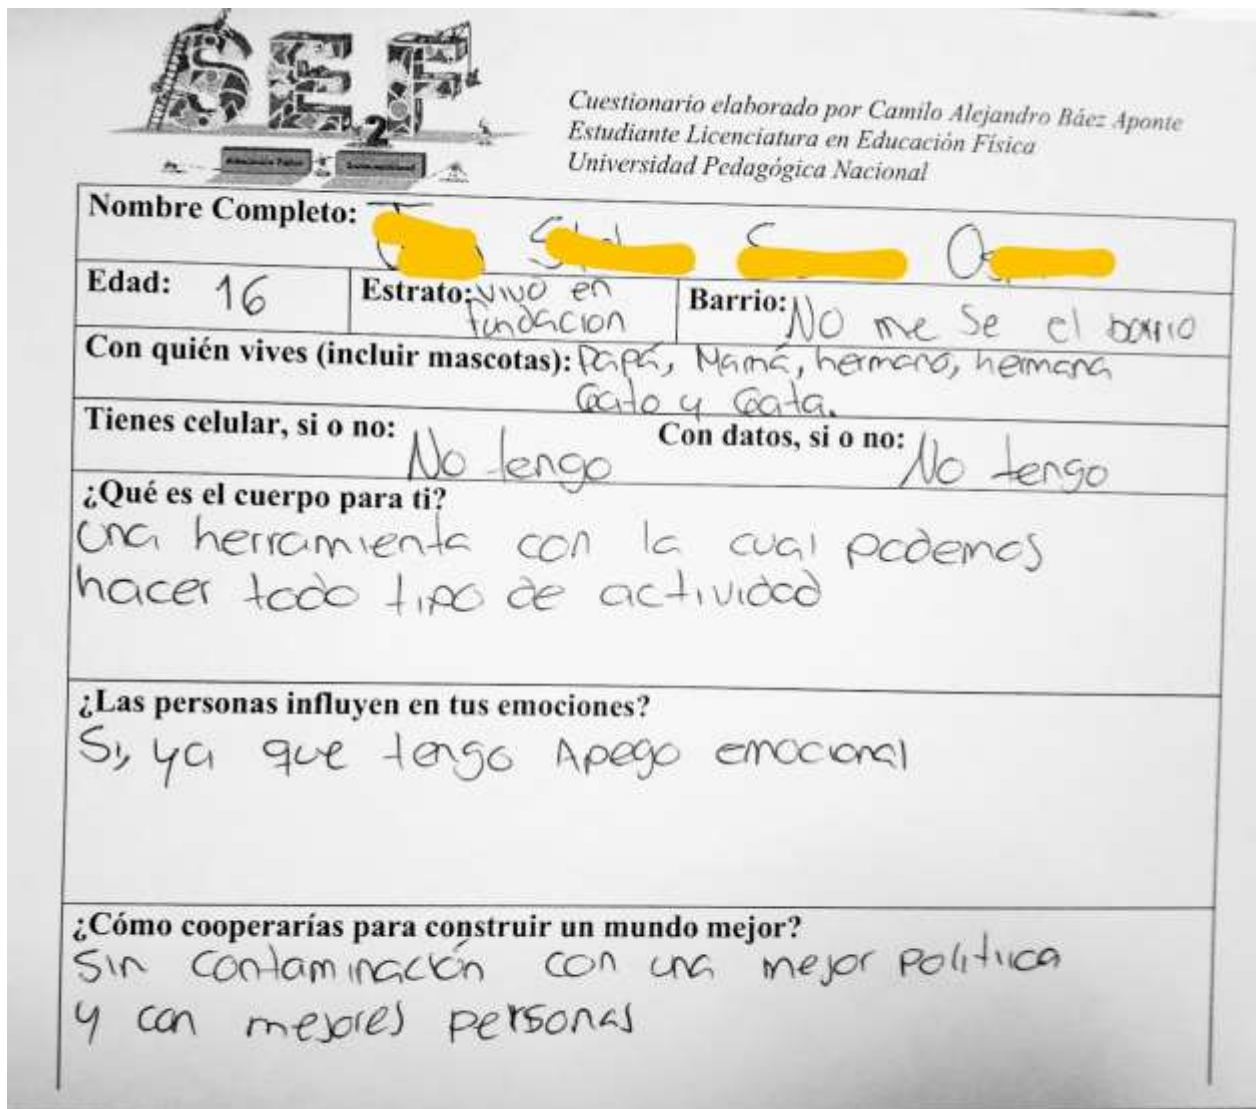 SE2F
Cuestionario elaborado por Camilo Alejandro Báez Aponte
Estudiante Licenciatura en Educación Física
Universidad Pedagógica Nacional
Nombre Completo:
Edad: 16 Estrato: vivo en fundacion Barrio: No me se el barrio
Con quién vives (incluir mascotas): Papá, Mamá, hermano, hermana
Gato y Gata.
Tienes celular, si o no: No tengo Con datos, si o no: No tengo
¿Qué es el cuerpo para ti?
una herramienta con la cual podemos
hacer todo tipo de actividad
¿Las personas influyen en tus emociones?
Si, ya que tengo Apego emocional
¿Cómo cooperarías para construir un mundo mejor?
Sin contaminación con una mejor politica
y con mejores personas